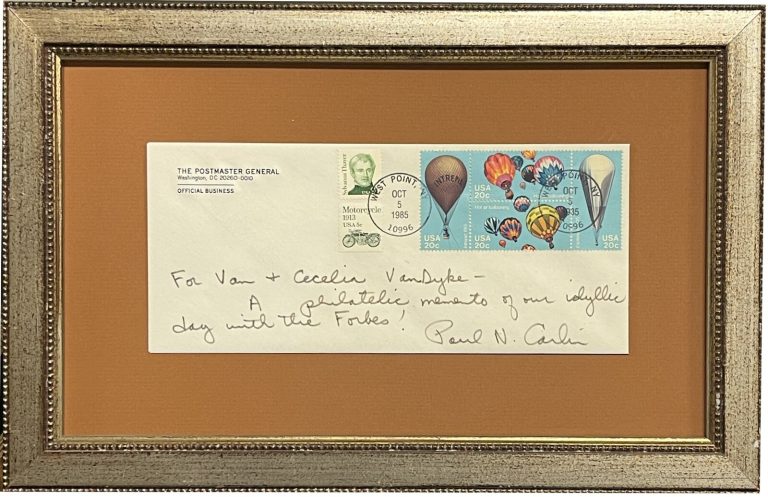 THE POSTMASTER GENERAL
Washington, DC 20260-0010
OFFICIAL BUSINESS
Sylvanus Thayer
Motorcycle
1913
USA 5c
WEST POINT, NY
OCT
5
1985
10996
INTREPID
USA
20c
USA
20c
USA
20c
USA
20c
WEST POINT, NY
OCT
5
1985
10996
For Van + Cecelia VanDyke –
A philatelic memento of our idyllic
day with the Forbes! Paul N. Carlin